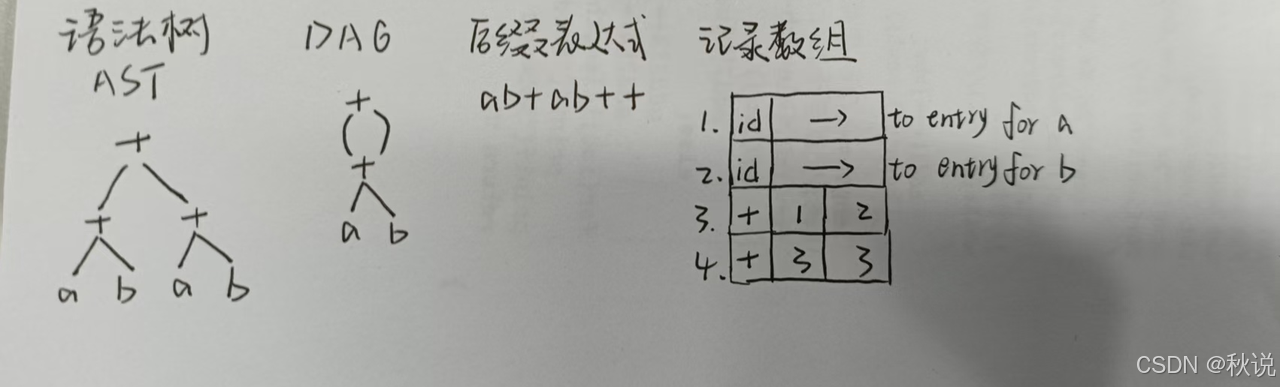 语法树
AST
+
+ +
a b a b
DAG
+
+
a b
后缀表达式
ab+ab++
记录数组
1. id → to entry for a
2. id → to entry for b
3. + 1 2
4. + 3 3
CSDN @秋说